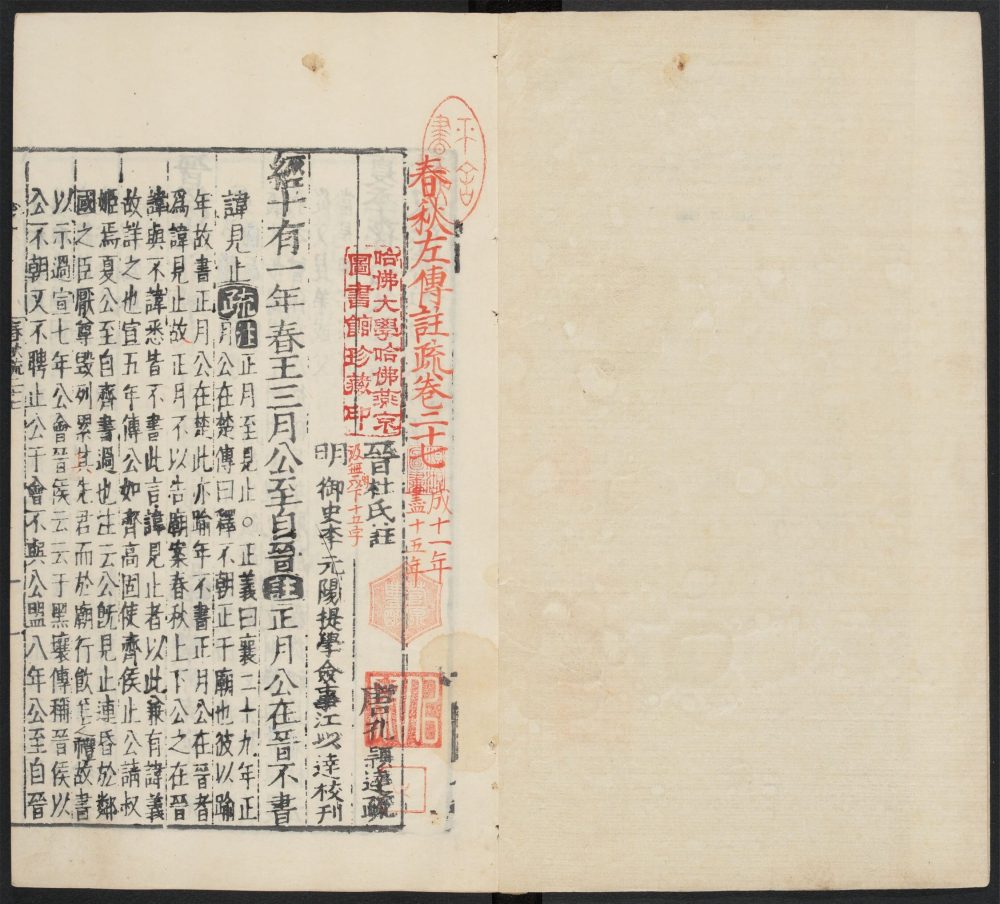 平
書
春秋左傳註疏卷二十七
成十一年
盡十五年
哈佛大學哈佛燕京
圖書館珍藏印
晉杜氏註 唐孔穎達疏
明御史李元陽提學僉事江以達校刊
下十五字
經十有一年春王三月公至自晉注正月公在晉不書
諱見止疏注正月至見止○正義曰襄二十九年正
月公在楚傳曰釋不朝正于廟也彼以踰
年故書正月公在楚此亦踰年不書正月公在晉者
爲諱見止故正月不以告廟案春秋上下公之在晉
諱與不諱悉皆不書此言諱見止者以此兼有諱義
故詳之也宣五年傳公如齊高固使齊侯止公請叔
姬焉夏公至自齊書過也注云公既見止連昏於鄰
國之臣厭尊毀列累其先君而於廟行飲至之禮故書
以示過宣七年公會晉侯云云于黑壤傳稱晉侯以
公不朝又不聘止公于會不與公盟八年公至自晉